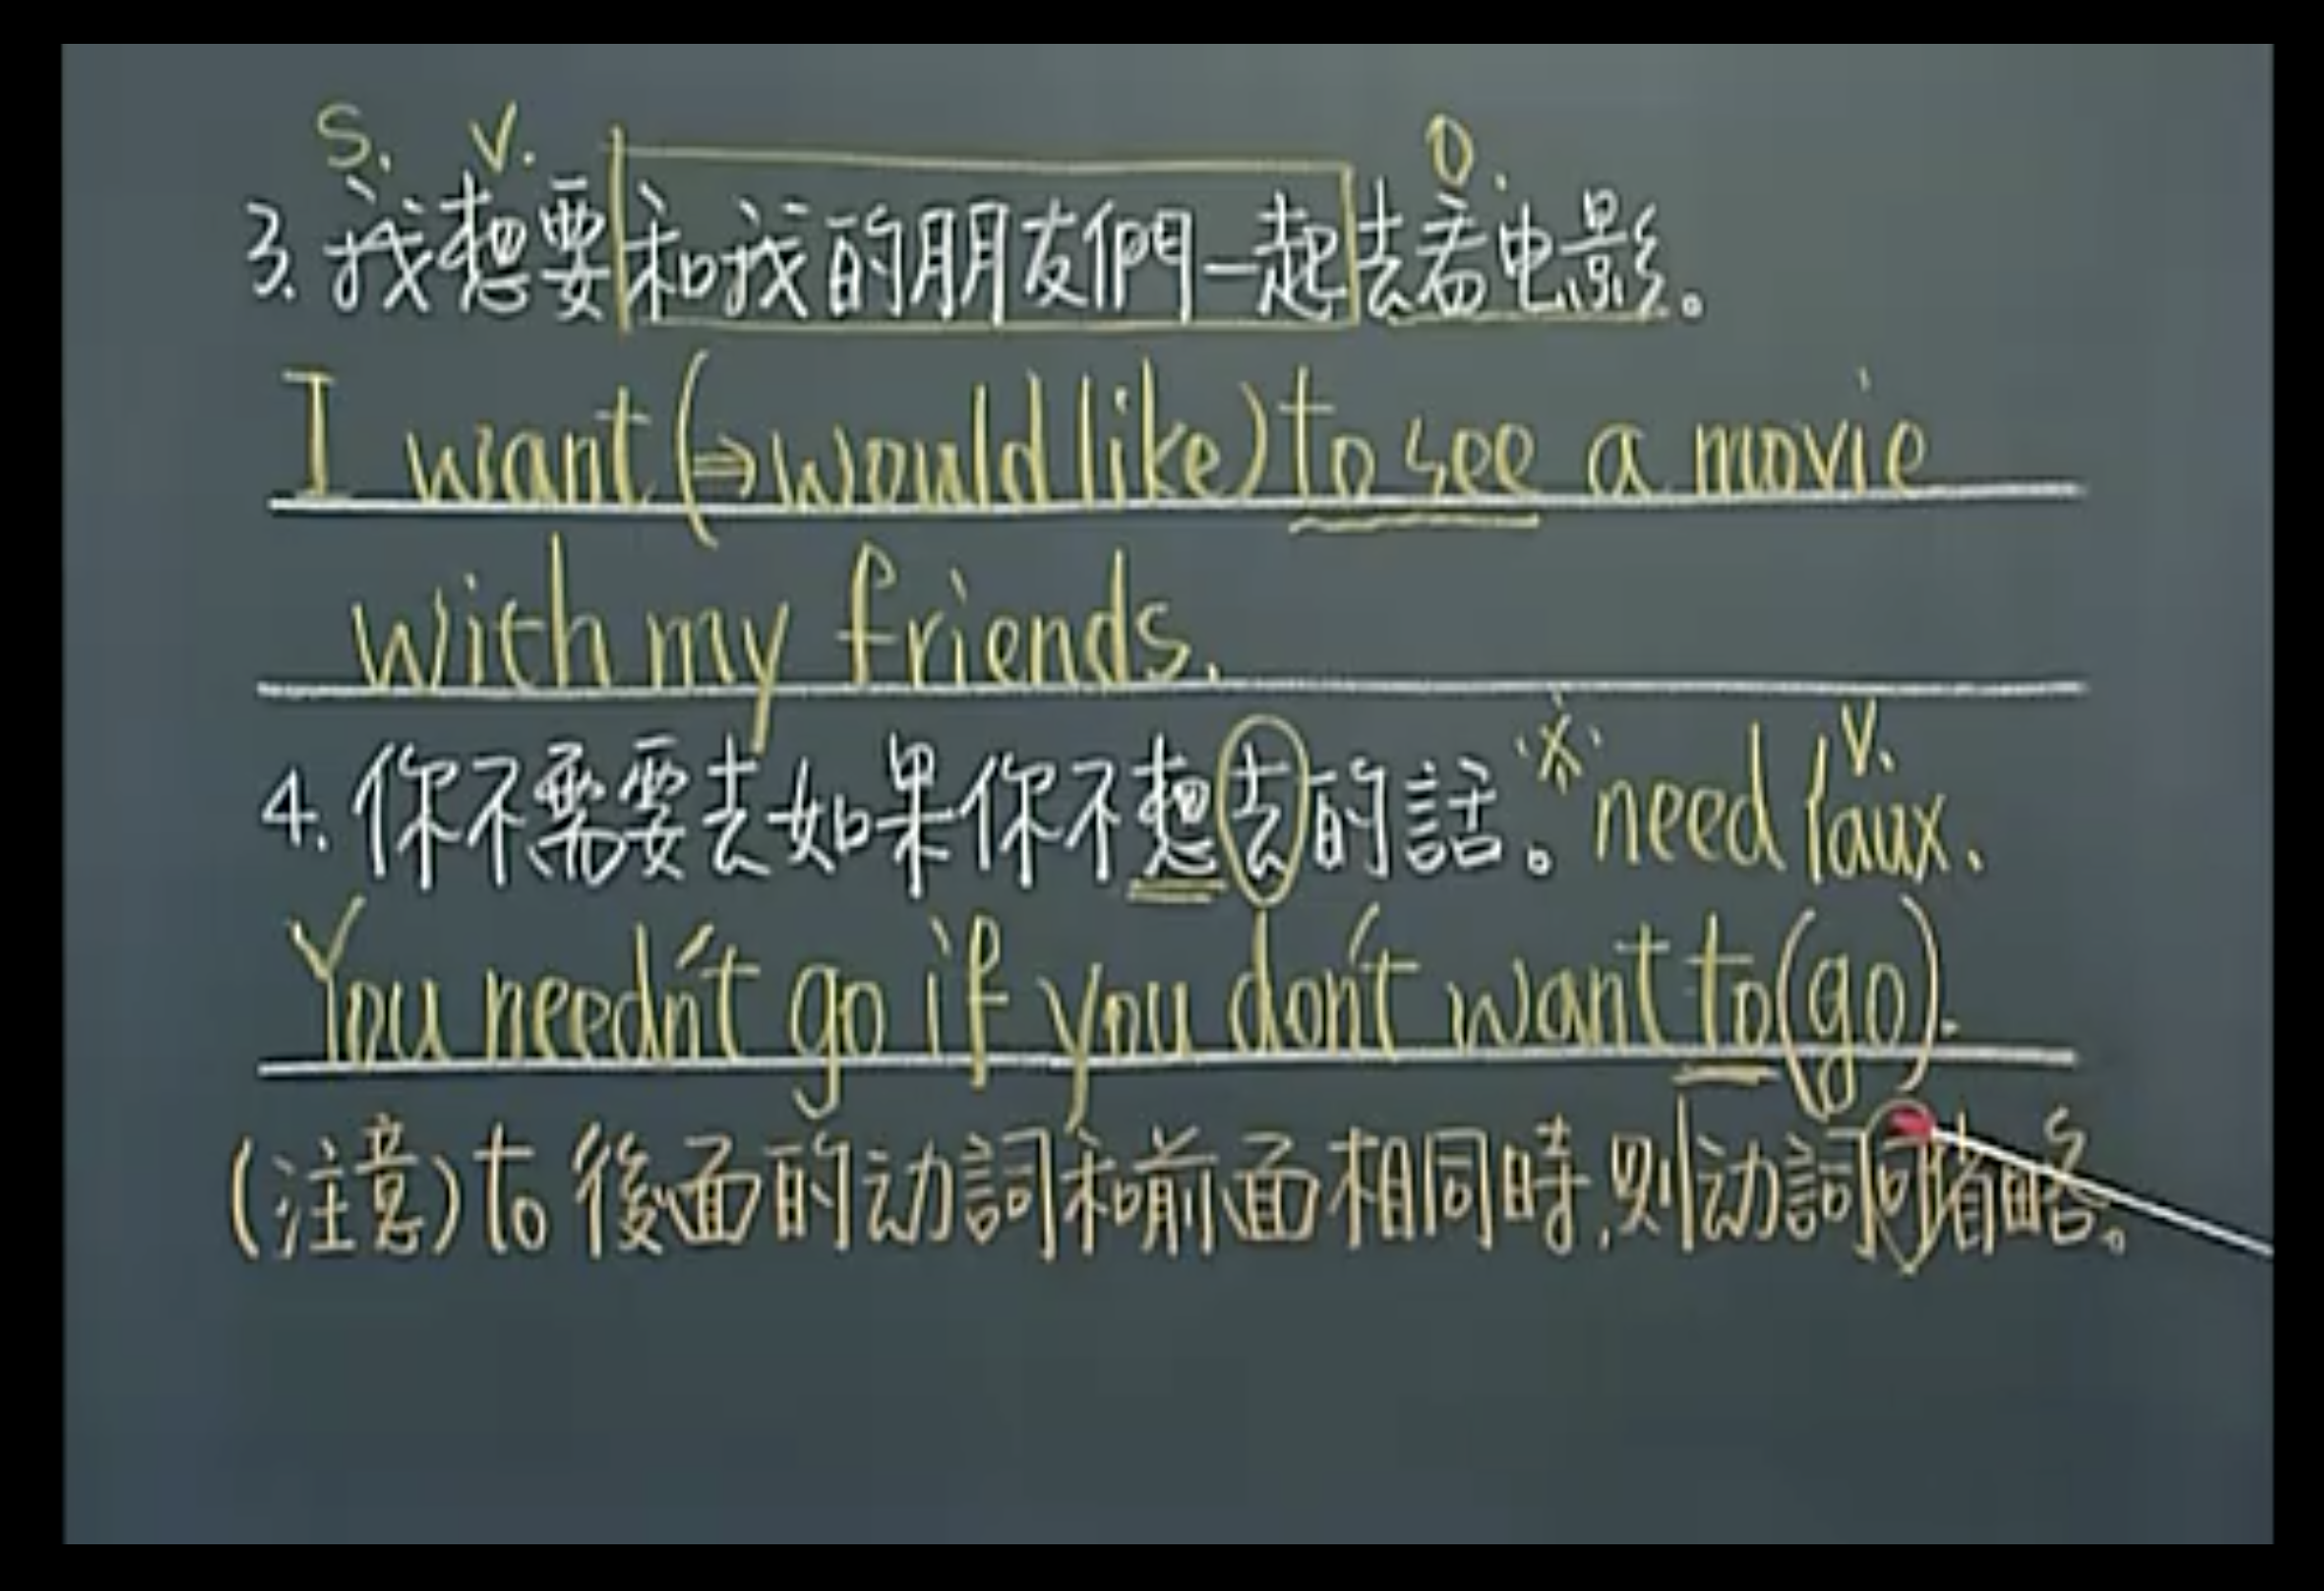 S. V. O.
3. 我想要和我的朋友們一起去看电影。
I want (⇒would like) to see a movie
with my friends.
4. 你不需要去如果你不想去的話。※need { V. aux.
You needn't go if you don't want to (go).
(注意) to 後面的动詞和前面相同時,则动詞可省略。